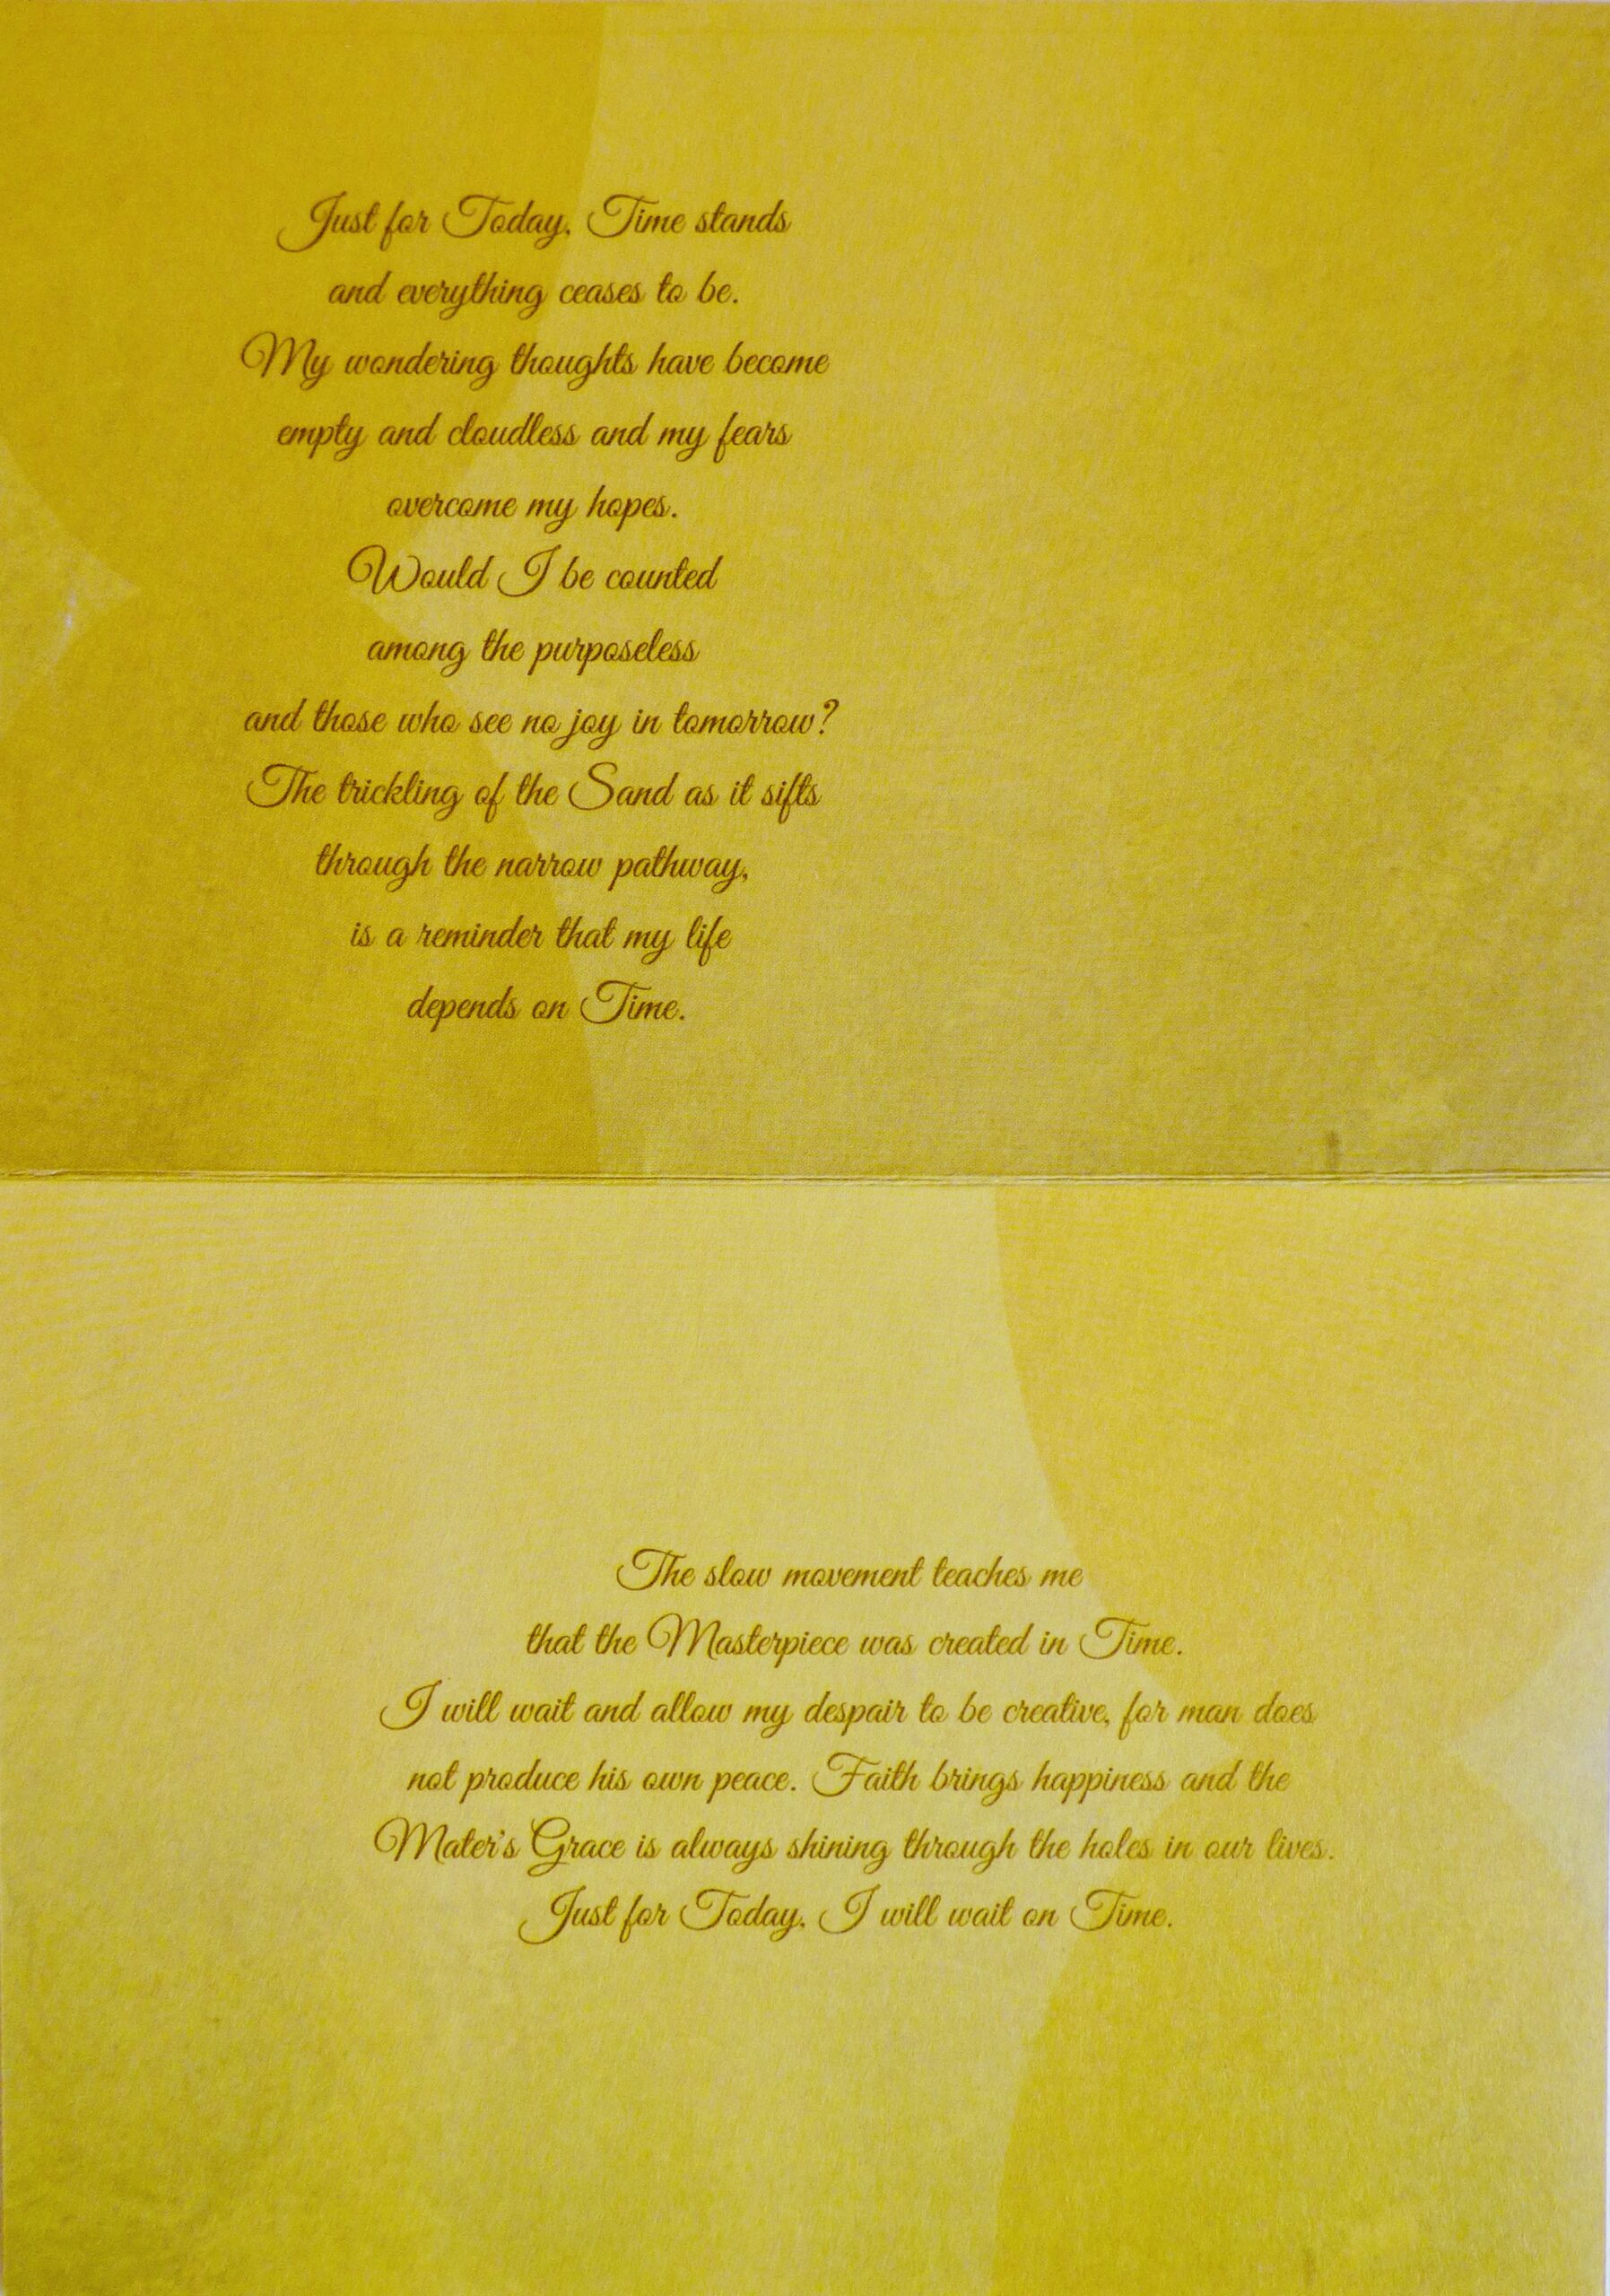 Just for Today, Time stands
and everything ceases to be.
My wondering thoughts have become
empty and cloudless and my fears
overcome my hopes.
Would I be counted
among the purposeless
and those who see no joy in tomorrow?
The trickling of the Sand as it sifts
through the narrow pathway,
is a reminder that my life
depends on Time.
The slow movement teaches me
that the Masterpiece was created in Time.
I will wait and allow my despair to be creative, for man does
not produce his own peace. Faith brings happiness and the
Mater's Grace is always shining through the holes in our lives.
Just for Today, I will wait on Time.